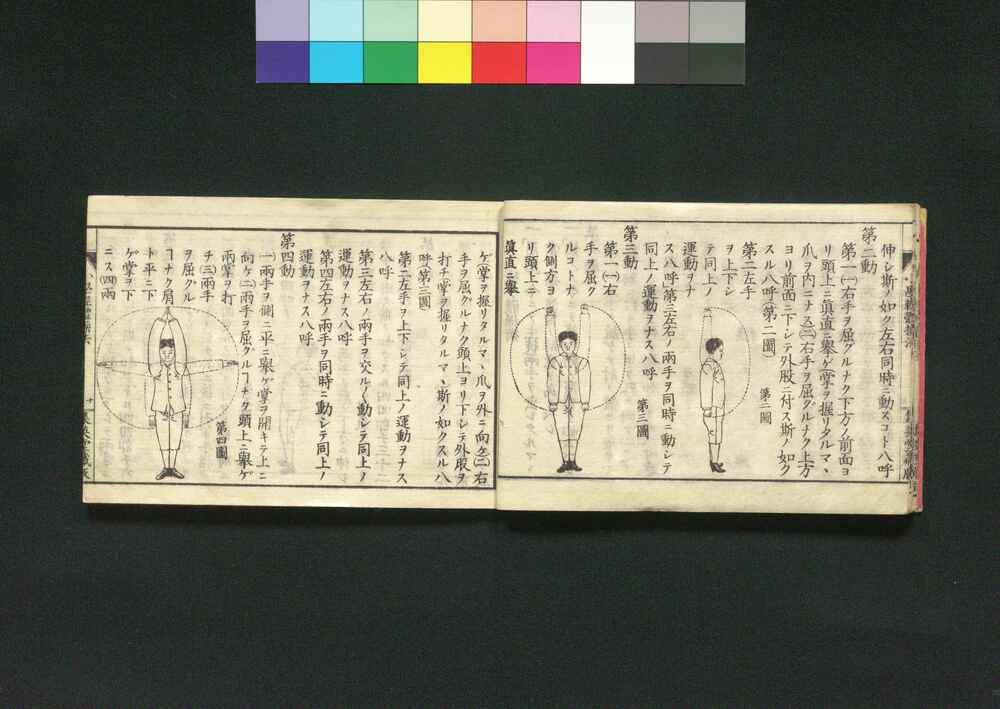 伸シ斯ノ如ク左右同時ニ動スコト八呼
第二動
第一(一)右手ヲ屈グルナク下方ノ前面ヨ
リ頭上ニ眞直ニ擧ゲ掌ヲ握リタルマヽ
爪ヲ内ニナス(二)右手ヲ屈グルナク上方
ヨリ前面ニ下シテ外股ニ付ス斯ノ如ク
スル八呼(第二圖)
第二圖
第二左手
ヲ上下シ
テ同上ノ
運動ヲナ
ス八呼第三左右ノ兩手ヲ同時ニ動シテ
同上ノ運動ヲナス八呼
第三圖
第三動
第一(一)右
手ヲ屈ク
ルコトナ
ク側方ヨ
リ頭上ニ
眞直ニ擧
ゲ掌ヲ握リタルマヽ爪ヲ外ニ向ケ(二)右
手ヲ屈グルナク頭上ヨリ下シテ外股ヲ
打チ掌ヲ握リタルマヽ斯ノ如クスル八
呼(第三圖)
第二左手ヲ上下シテ同上ノ運動ヲナス
八呼
第三左右ノ兩手ヲ交ル〱動シテ同上ノ
運動ヲナス八呼
第四左右ノ兩手ヲ同時ニ動シテ同上ノ
運動ヲナス八呼
第四動
一兩手ヲ側ニ平ニ擧ゲ掌ヲ開キテ上ニ
向ケ(二)兩手ヲ屈グルヿナク頭上ニ擧ゲ
兩掌ヲ打
第四圖
チ(三)兩手
ヲ屈クル
ヿナク肩
ト平ニ下
ゲ掌ヲ下
ニス(四)兩